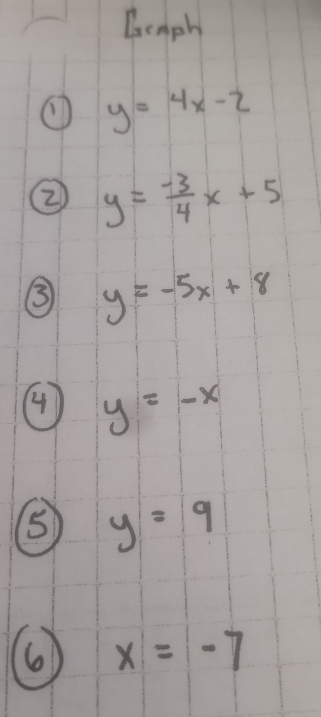 Graph
① y = 4x - 2
② y = -3/4 x + 5
③ y = -5x + 8
④ y = -x
⑤ y = 9
⑥ x = -7